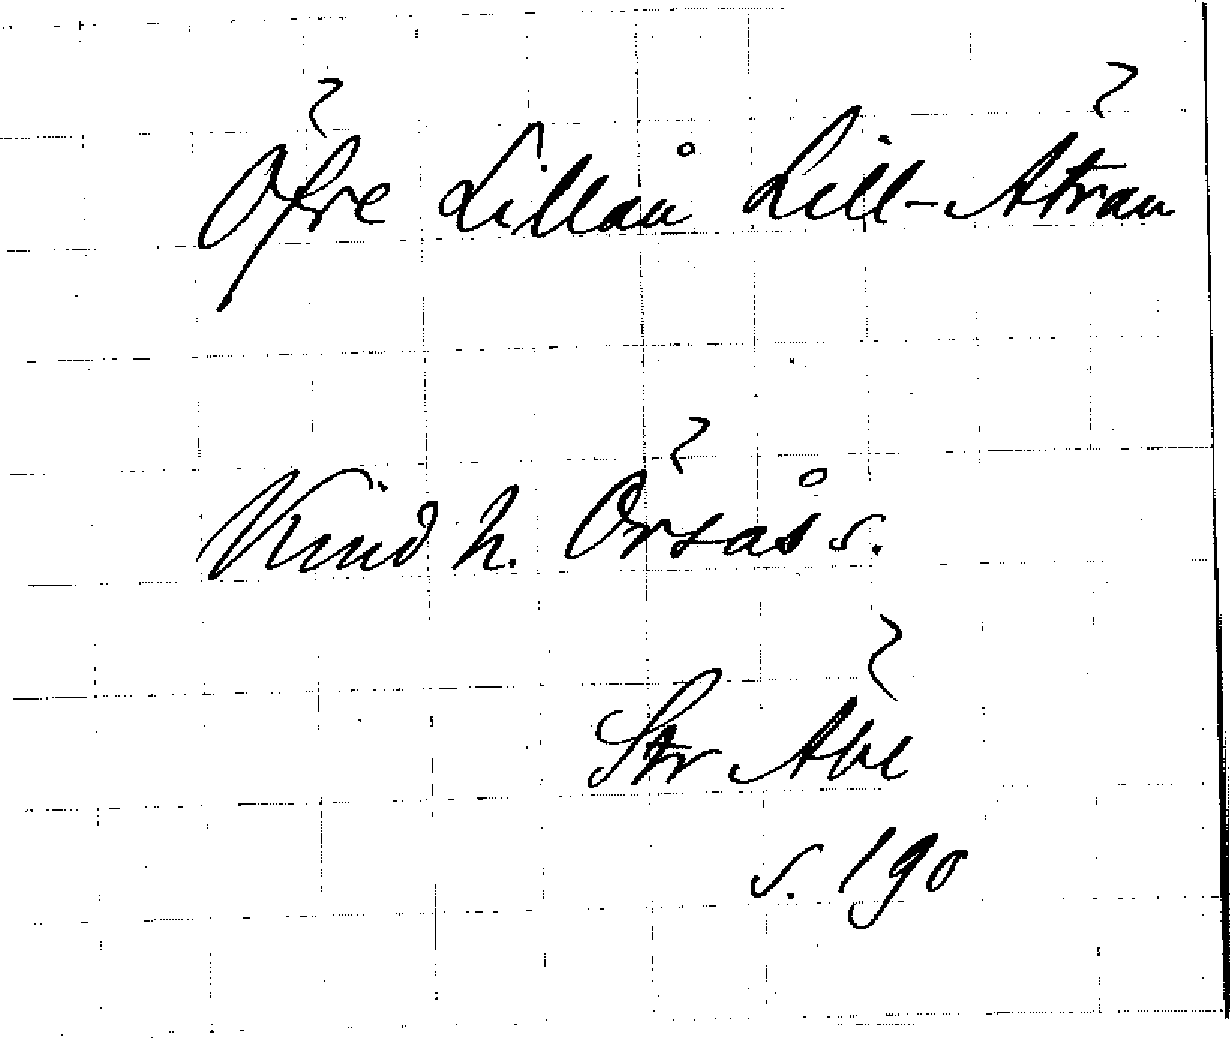 Öfre Lillån Lill-Ätran
Kind h. Örsås s.
Str
s. 190